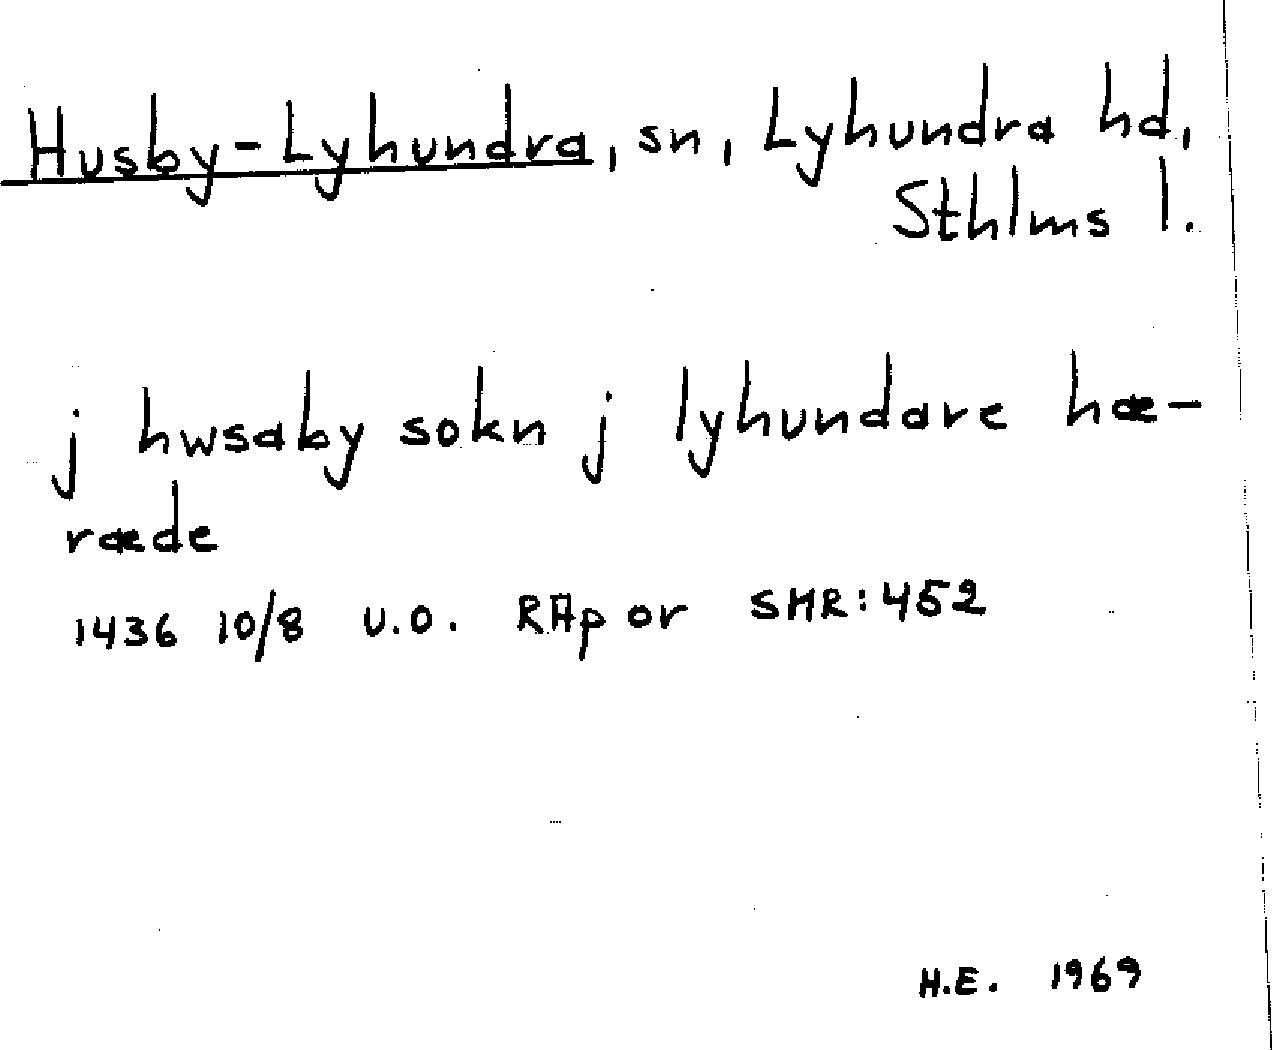 Husby-Lyhundra, sn, Lyhundra hd,
Sthlms l.
j hwsaby sokn j lyhundare hæ-
ræde
1436 10/8 u.o. RAp or SMR:452
H.E. 1969